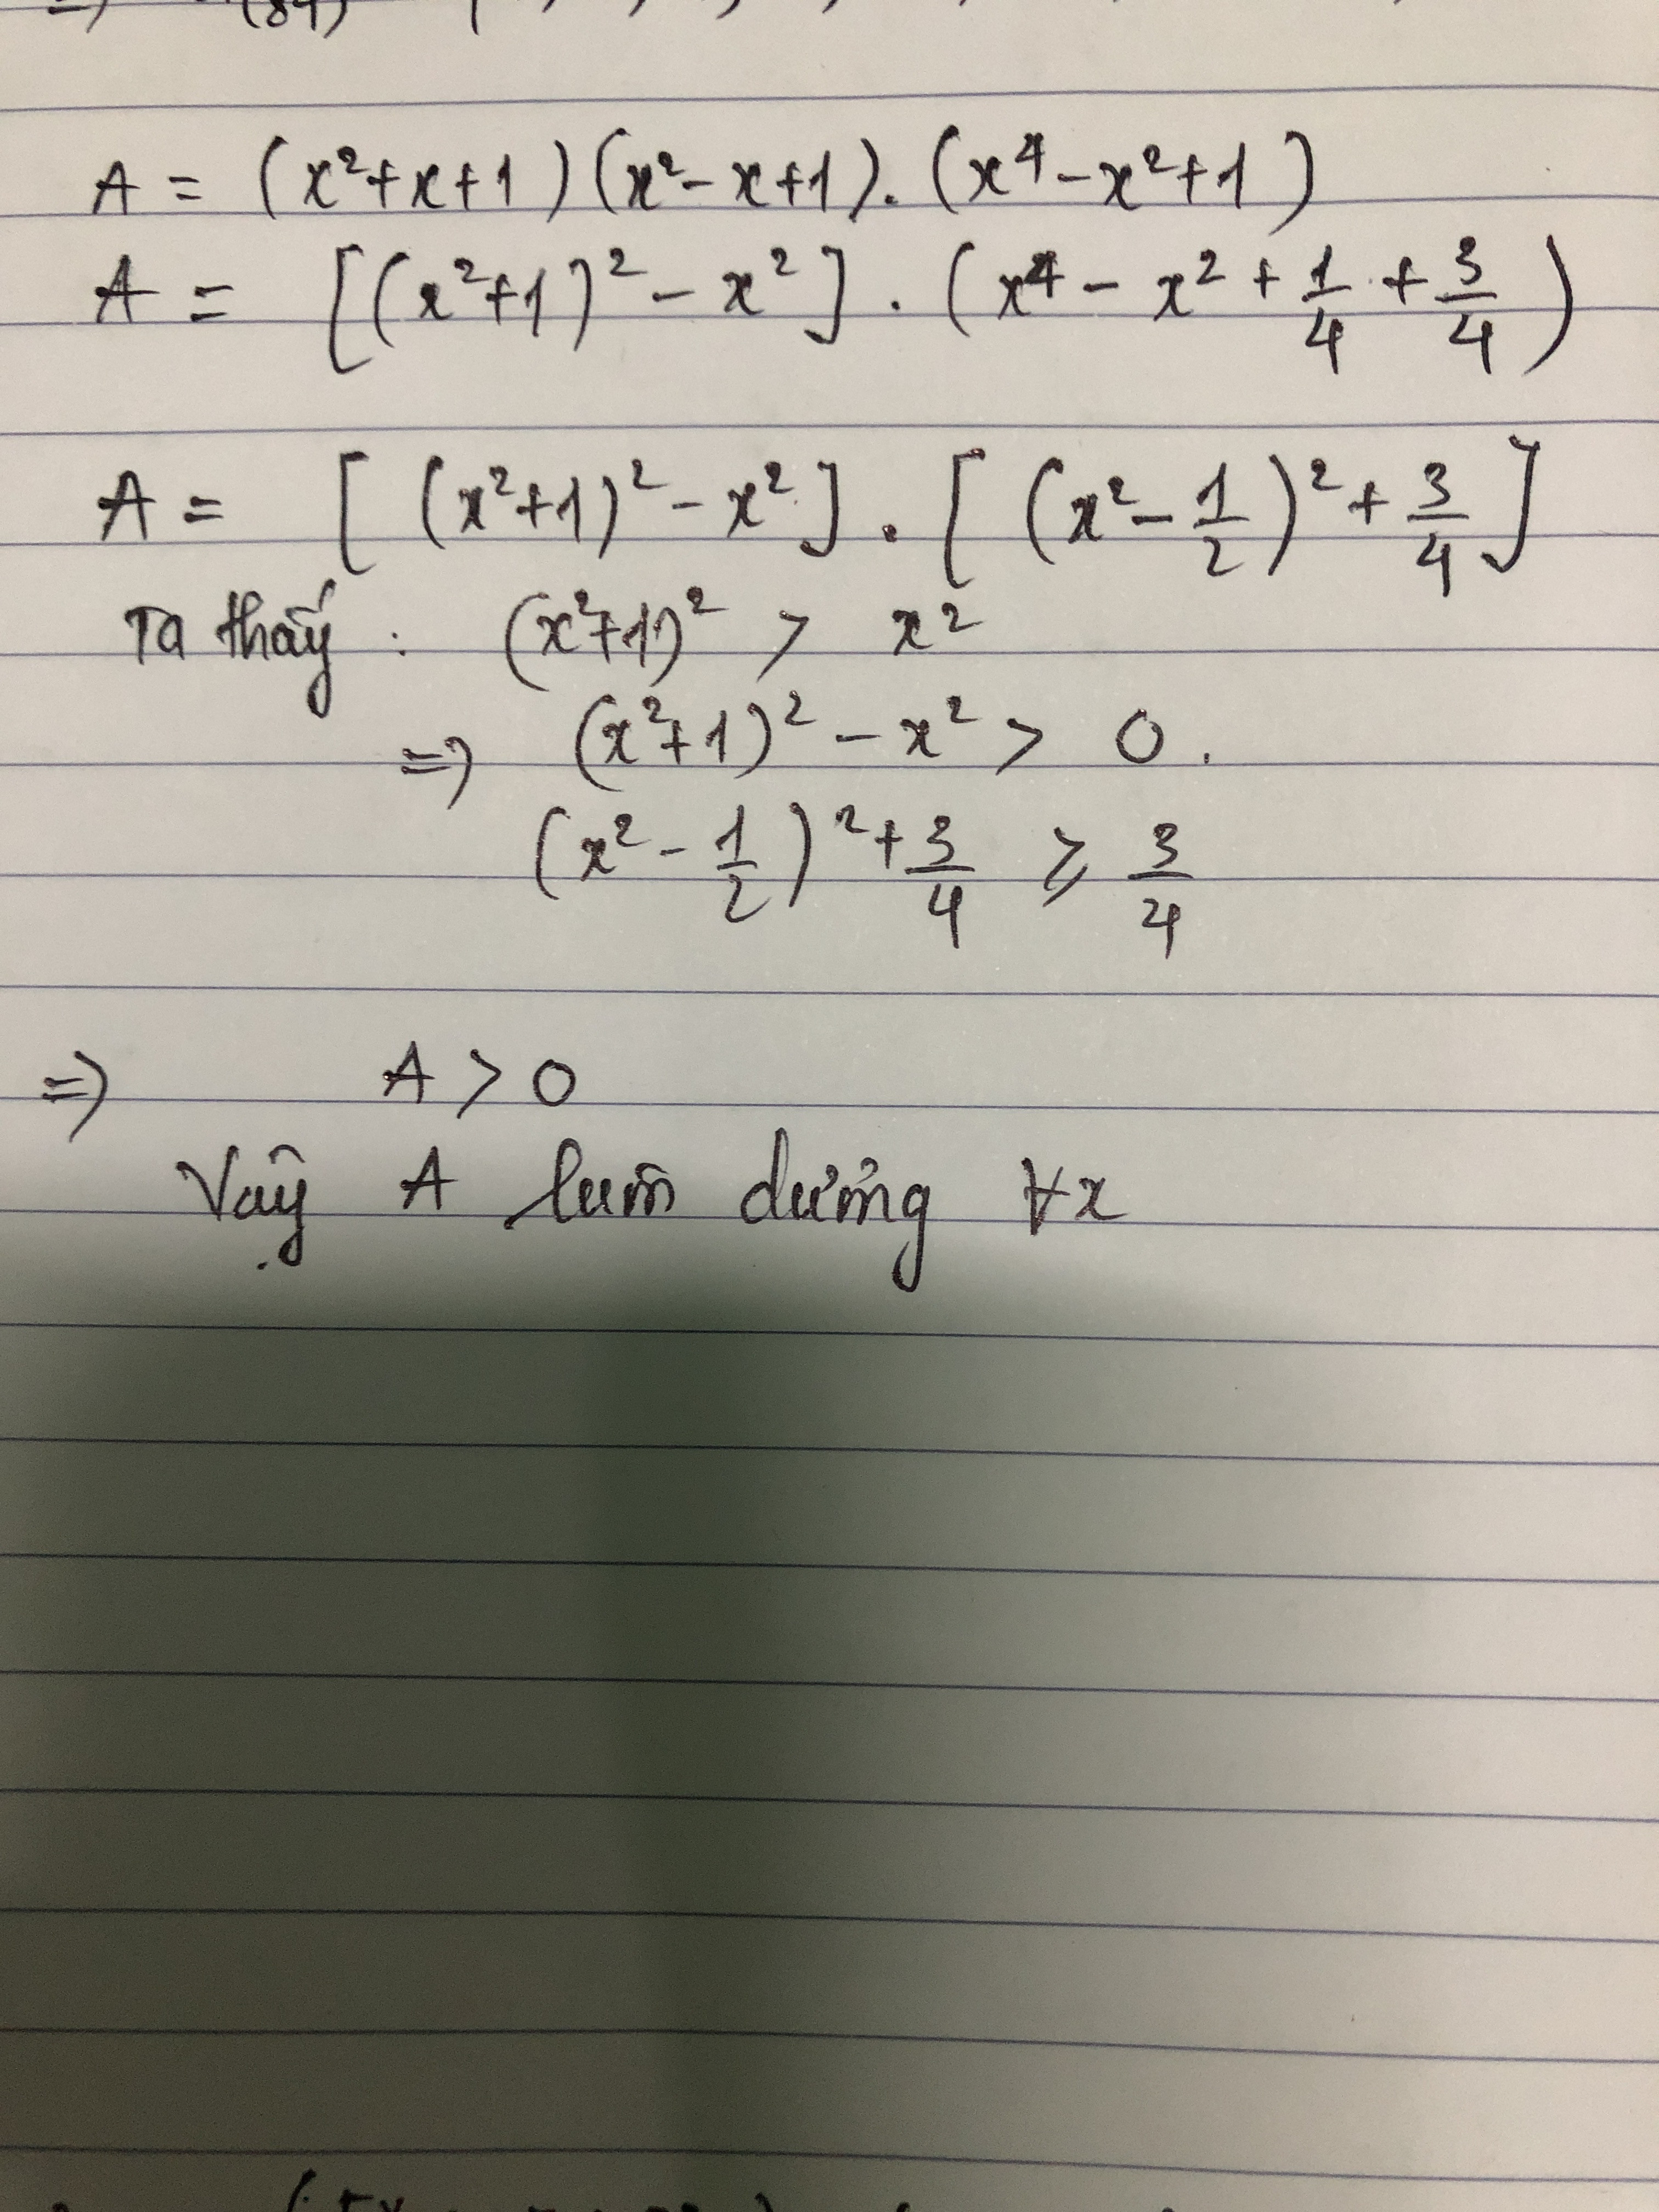 (84)
A = (x²+x+1)(x²-x+1).(x⁴-x²+1)
A = [(x²+1)²-x²].(x⁴-x²+1/4+3/4)
A = [(x²+1)²-x²].[(x²-1/2)²+3/4]
Ta thấy : (x²+1)² > x²
=> (x²+1)²-x² > 0.
(x²-1/2)²+3/4 ≥ 3/4
=> A > 0
Vậy A luôn dương ∀x